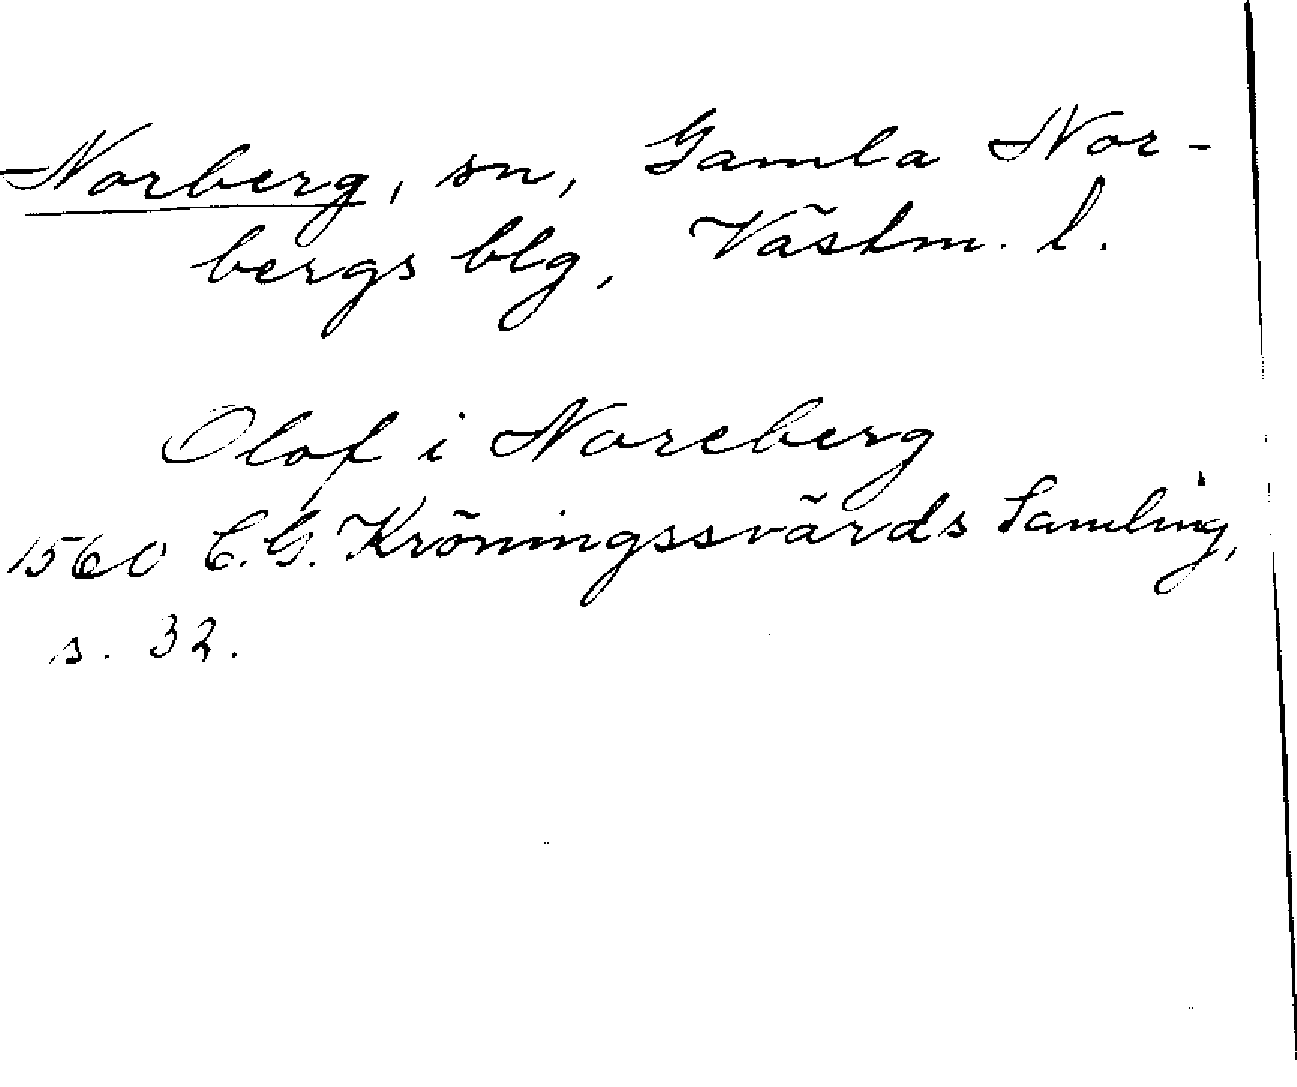 Norberg, sn, Gamla Nor-
bergs blg, Västm. l.
Olof i Noreberg
1560 C.G. Kröningssvärds Samling,
s. 32.